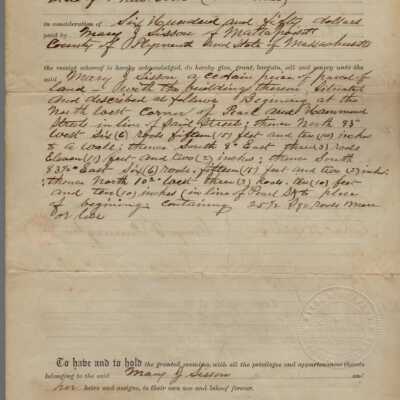 in consideration of Six Hundred and fifty dollars
paid by Mary J Sisson of Mattapoisett
County of Plymouth and State of Massachusetts
the receipt whereof is hereby acknowledged, do hereby give, grant, bargain, sell and convey unto the
said Mary J Sisson, a certain piece of parcel of
land with the buildings thereon, situated
and described as follows Beginning at the
North East corner of Pearl and Hammond
Street in line of said Street; thence North 83°
West Six (6) rods fifteen (15) feet and ten (10) inches
to a Wall; thence South 8° East three (3) rods
Eleven (11) feet and two (2) inches; thence South
83½° East Six (6) rods, fifteen (15) feet and two (2) inches
thence North 10½° West three (3) rods, ten (10) feet
and ten (10) inches (in line of Pearl St) to place
of begining containing rods more
or less
To have and to hold the granted premises, with all the privileges and appurtenances thereto
belonging to the said Mary J Sisson and
her heirs and assigns, to their own use and behoof forever.